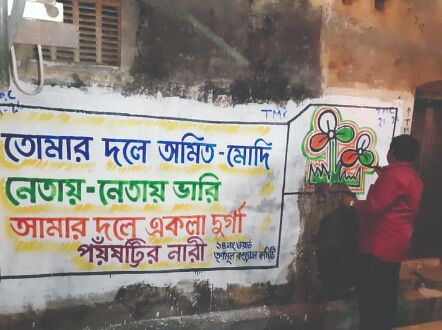 TMC
তোমার দলে অমিত-মোদি
নেতায়-নেতায় ভারি
আমার দলে একলা দুর্গা
পঁয়ষট্টির নারী
১৪নং ওয়ার্ড
তৃণমূল কংগ্রেস কমিটি